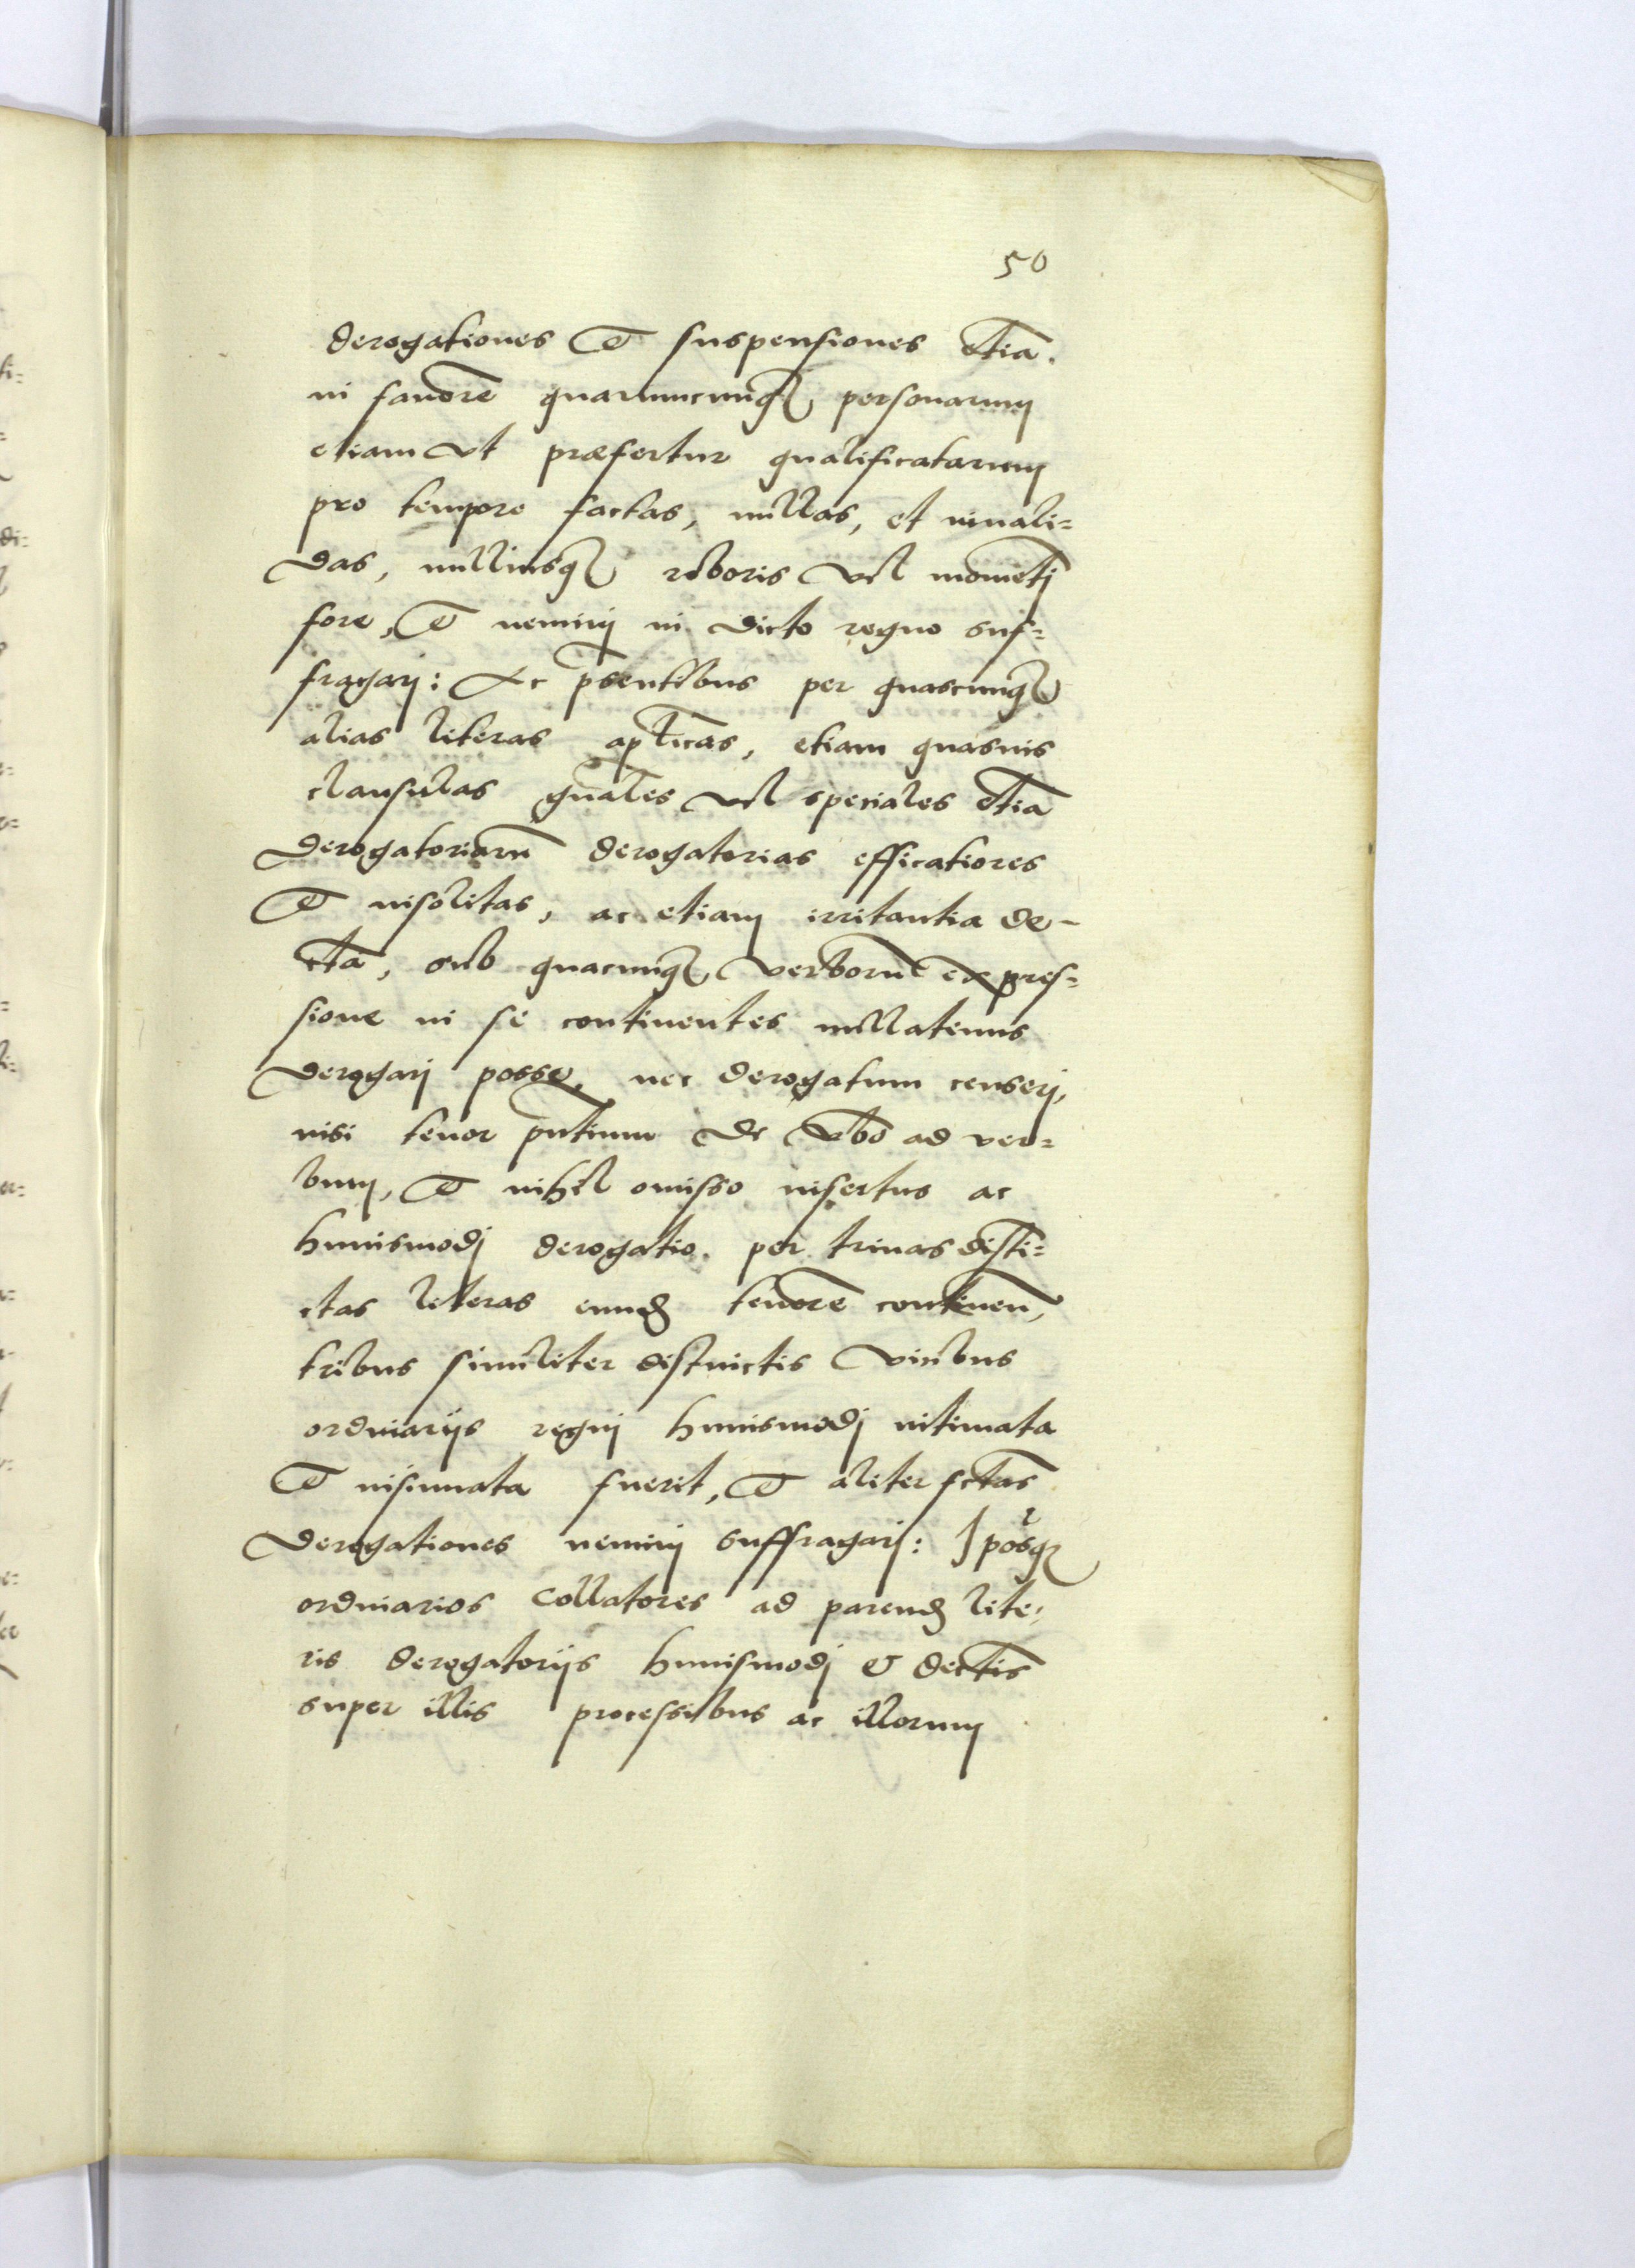 50
derogationes et suspensiones etiā.
in favorē quarumcumq₃ personarum
etiam vt præfertur qualificatarum
pro tempore factas, nullas, et invali=
das, nulliusq₃ roboris vel momētj
fore, et neminj in dicto regno suf=
fragarj: Ac p̄sentibus per quascumq₃
alias literas aplicas, etiam quasuis
clausulas gn̄ales vel speciales etiā
derogatoriarū derogatorias efficatiores
et insolitas, ac etiam irritantia de-
cta, sub quacumq₃ verborū expres=
sione in se continentes nullatenus
derogarj posse, nec derogatum censerj,
nisi tenor pn̄tium de vbo ad ver=
bum, et nihil omisso insertus ac
huiusmodj derogatio. per trinas disti=
ctas literas eund̄ tenorē continen̄,
tribus similiter distinctis vicibus
ordinarijs regnj huiusmodj intimata
et insinuata fuerit, et aliter fctas
derogationes neminj suffragarj: Iposq₃
ordinarios Collatores ad parend̄ lite=
ris derogatorijs huiusmodj & dectis
super illis processibus ac illorum